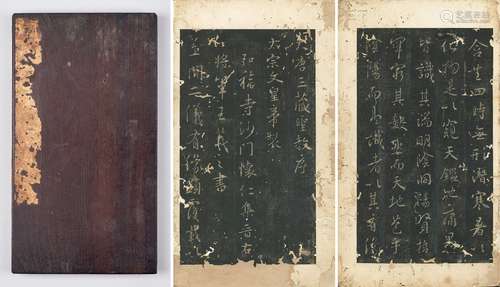 大唐三藏聖教序
太宗文皇帝製
弘福寺沙門懷仁集晉右
將軍王羲之書
蓋聞二儀有像顯覆載
含生四時無形潛寒暑以
化物是以窺天鑑地庸愚
皆識其端明陰洞陽賢哲
罕窮其數然而天地苞乎
陰陽而易識者以其有像